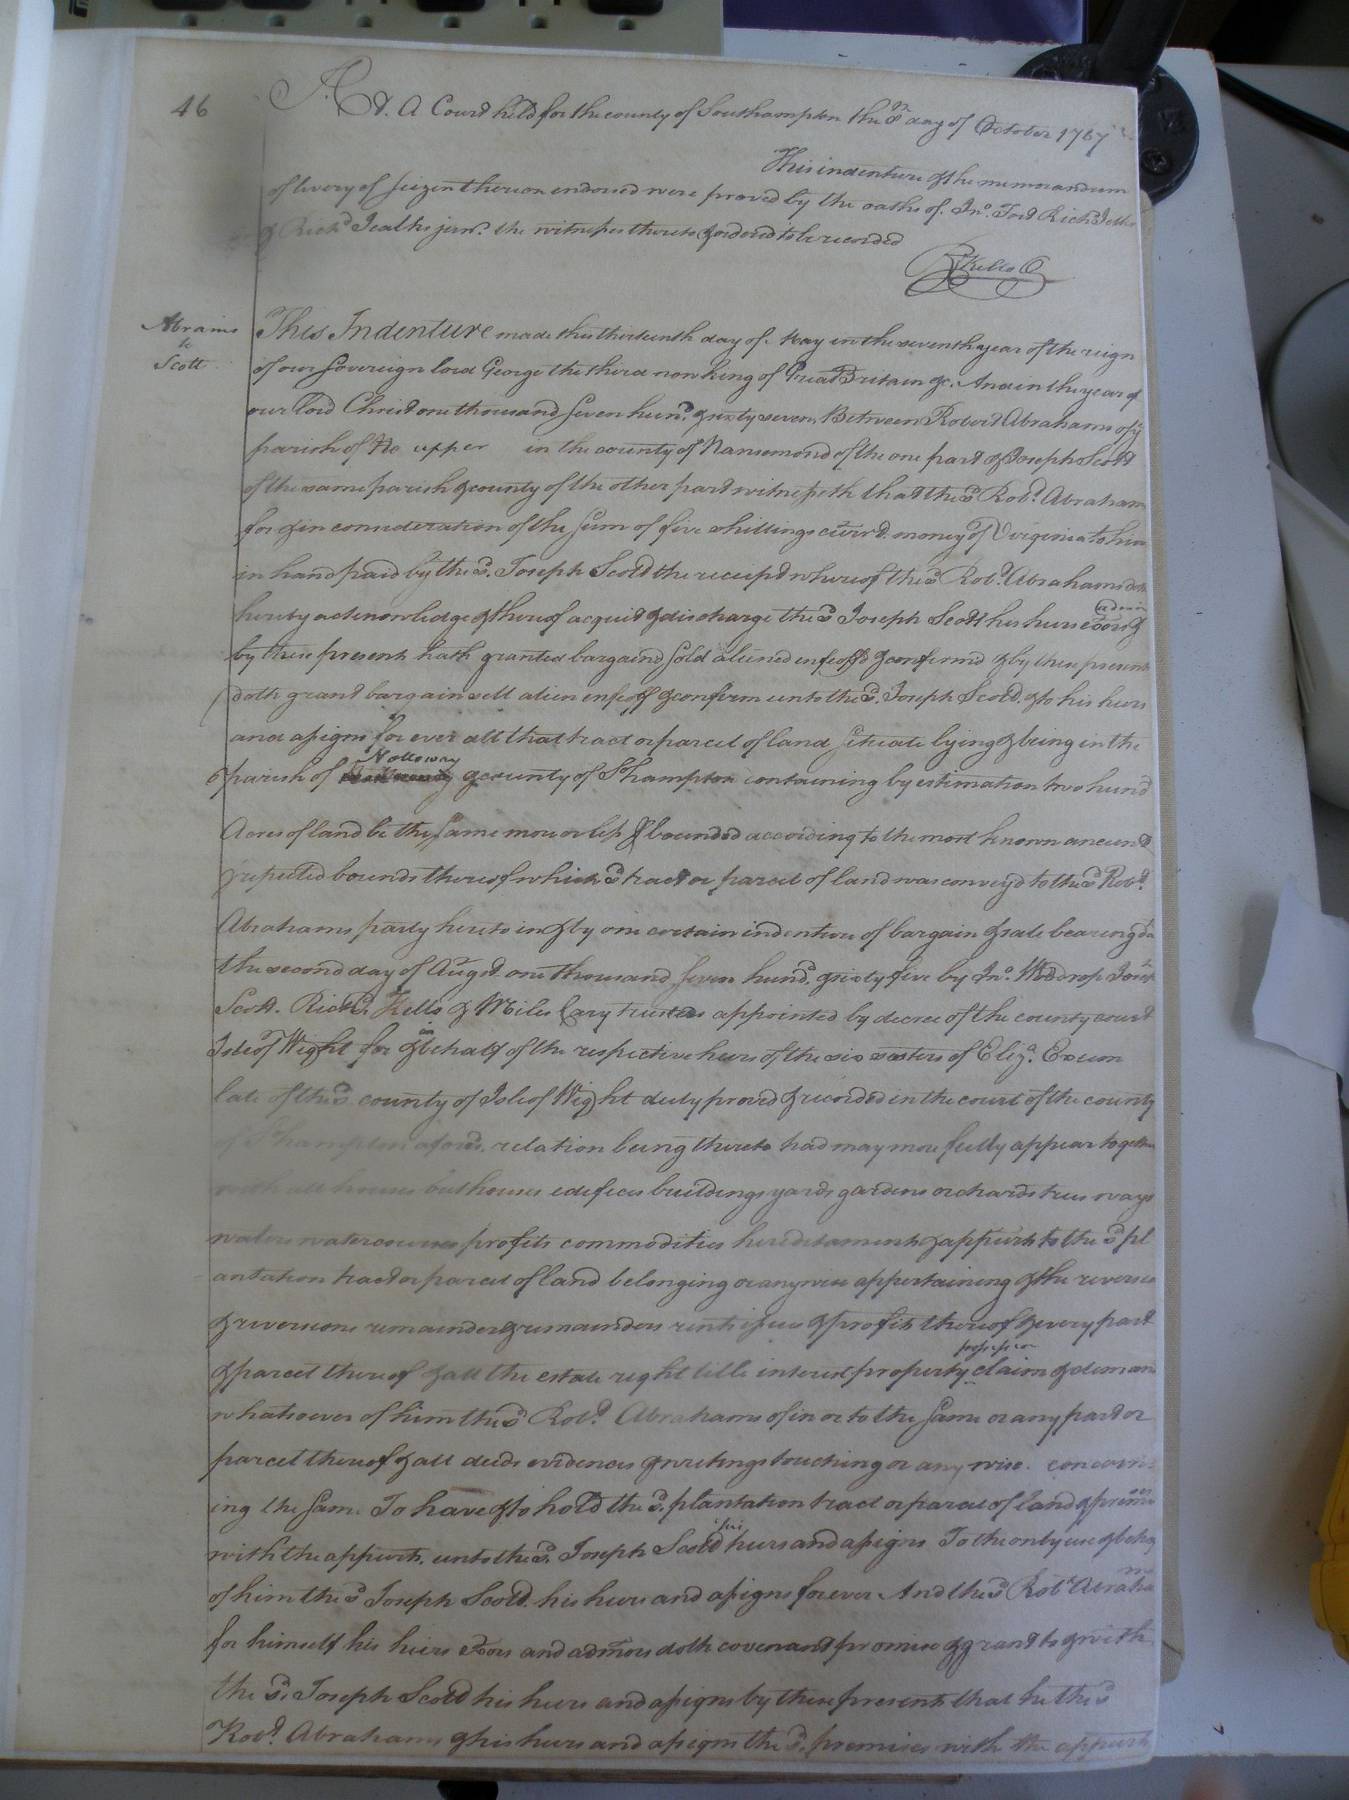 46
At. A Court held for the county of Southampton the 8th day of October 1767
This indenture & the memorandum
of livery of seizen thereon endorsed were proved by the oaths of. Jno. Richd
& Richd junr. the witnesses thereto & ordered to be recorded
RKello C
Abrams
to
Scott
This Indenture made this thirteenth day of. May in the seventh year of the reign
of our Sovereign lord George the third now king of Great Britain &c. And in the year of
our lord Christ one thousand Seven hund. & sixty seven Between Robert Abrahams of ye
parish of the upper in the county of Nansemond of the one part & Joseph Scott
of the same parish & county of the other part witnesseth that the sd. Robt. Abraham
for & in consideration of the Sum of five shillings currt. money of Virginia to him
in hand paid by the sd. Joseph Scott the receipt whereof the sd Robt. Abrahams doth
hereby acknowledge & thereof acquit & discharge the sd Joseph Scott his heirs exors &
by these present hath granted bargaind Sold aliened enfeoff'd & confirmd & by these present
doth grant bargain sell alien enfeoff & confirm unto the sd. Joseph Scott. & to his heirs
and assigns for ever all that tract or parcel of land Situate lying & being in the
parish of Nottoway & county of S'hampton containing by estimation two hund
Acres of land be the Same more or less & bounded according to the most known ancient
reputed bounds thereof which sd tract or parcel of land was convey'd to the sd Robt.
Abrahams party hereto in & by one certain indenture of bargain & sale bearing da
the second day of Augst. one thousand Seven hund. & sixty five by Jno. Wodrop Joseph
Scott. Richd. Kello & Miles Cary trustees appointed by decree of the county court
Isle of Wight for & on behalf of the respective heirs of the six sisters of Eliza. Exum
late of the sd county of Isle of Wight duly proved & recorded in the court of the county
of S'hampton aforesd. relation being thereto had may more fully appear together
with all houses outhouses edifices buildings yards gardens orchards trees ways
waters watercourses profits commodities hereditaments & appurts to the sd pl
antation tract or parcel of land belonging or anywise appertaining & the reversion
& reversions remainder & remainders rents issues & profits thereof & every part
& parcel thereof & all the estate right title interest property possession claim & deman
whatsoever of him the sd Robt. Abrahams of in or to the Same or any part or
parcel thereof & all deeds evidences & writings touching or any wise. concern
ing the Same. To have & to hold the sd. plantation tract or parcel of land & premis
with the appurts. unto the sd. Joseph Scott his heirs and assigns To the only use & behoof
of him the sd Joseph Scott. his heirs and assigns forever And the sd Robt Abraham
for himself his heirs Exors and admors doth covenant promise & grant to & with
the sd. Joseph Scott his heirs and assigns by these presents that he the sd
Robt. Abrahams & his heirs and assigns the sd. premises with the appurts